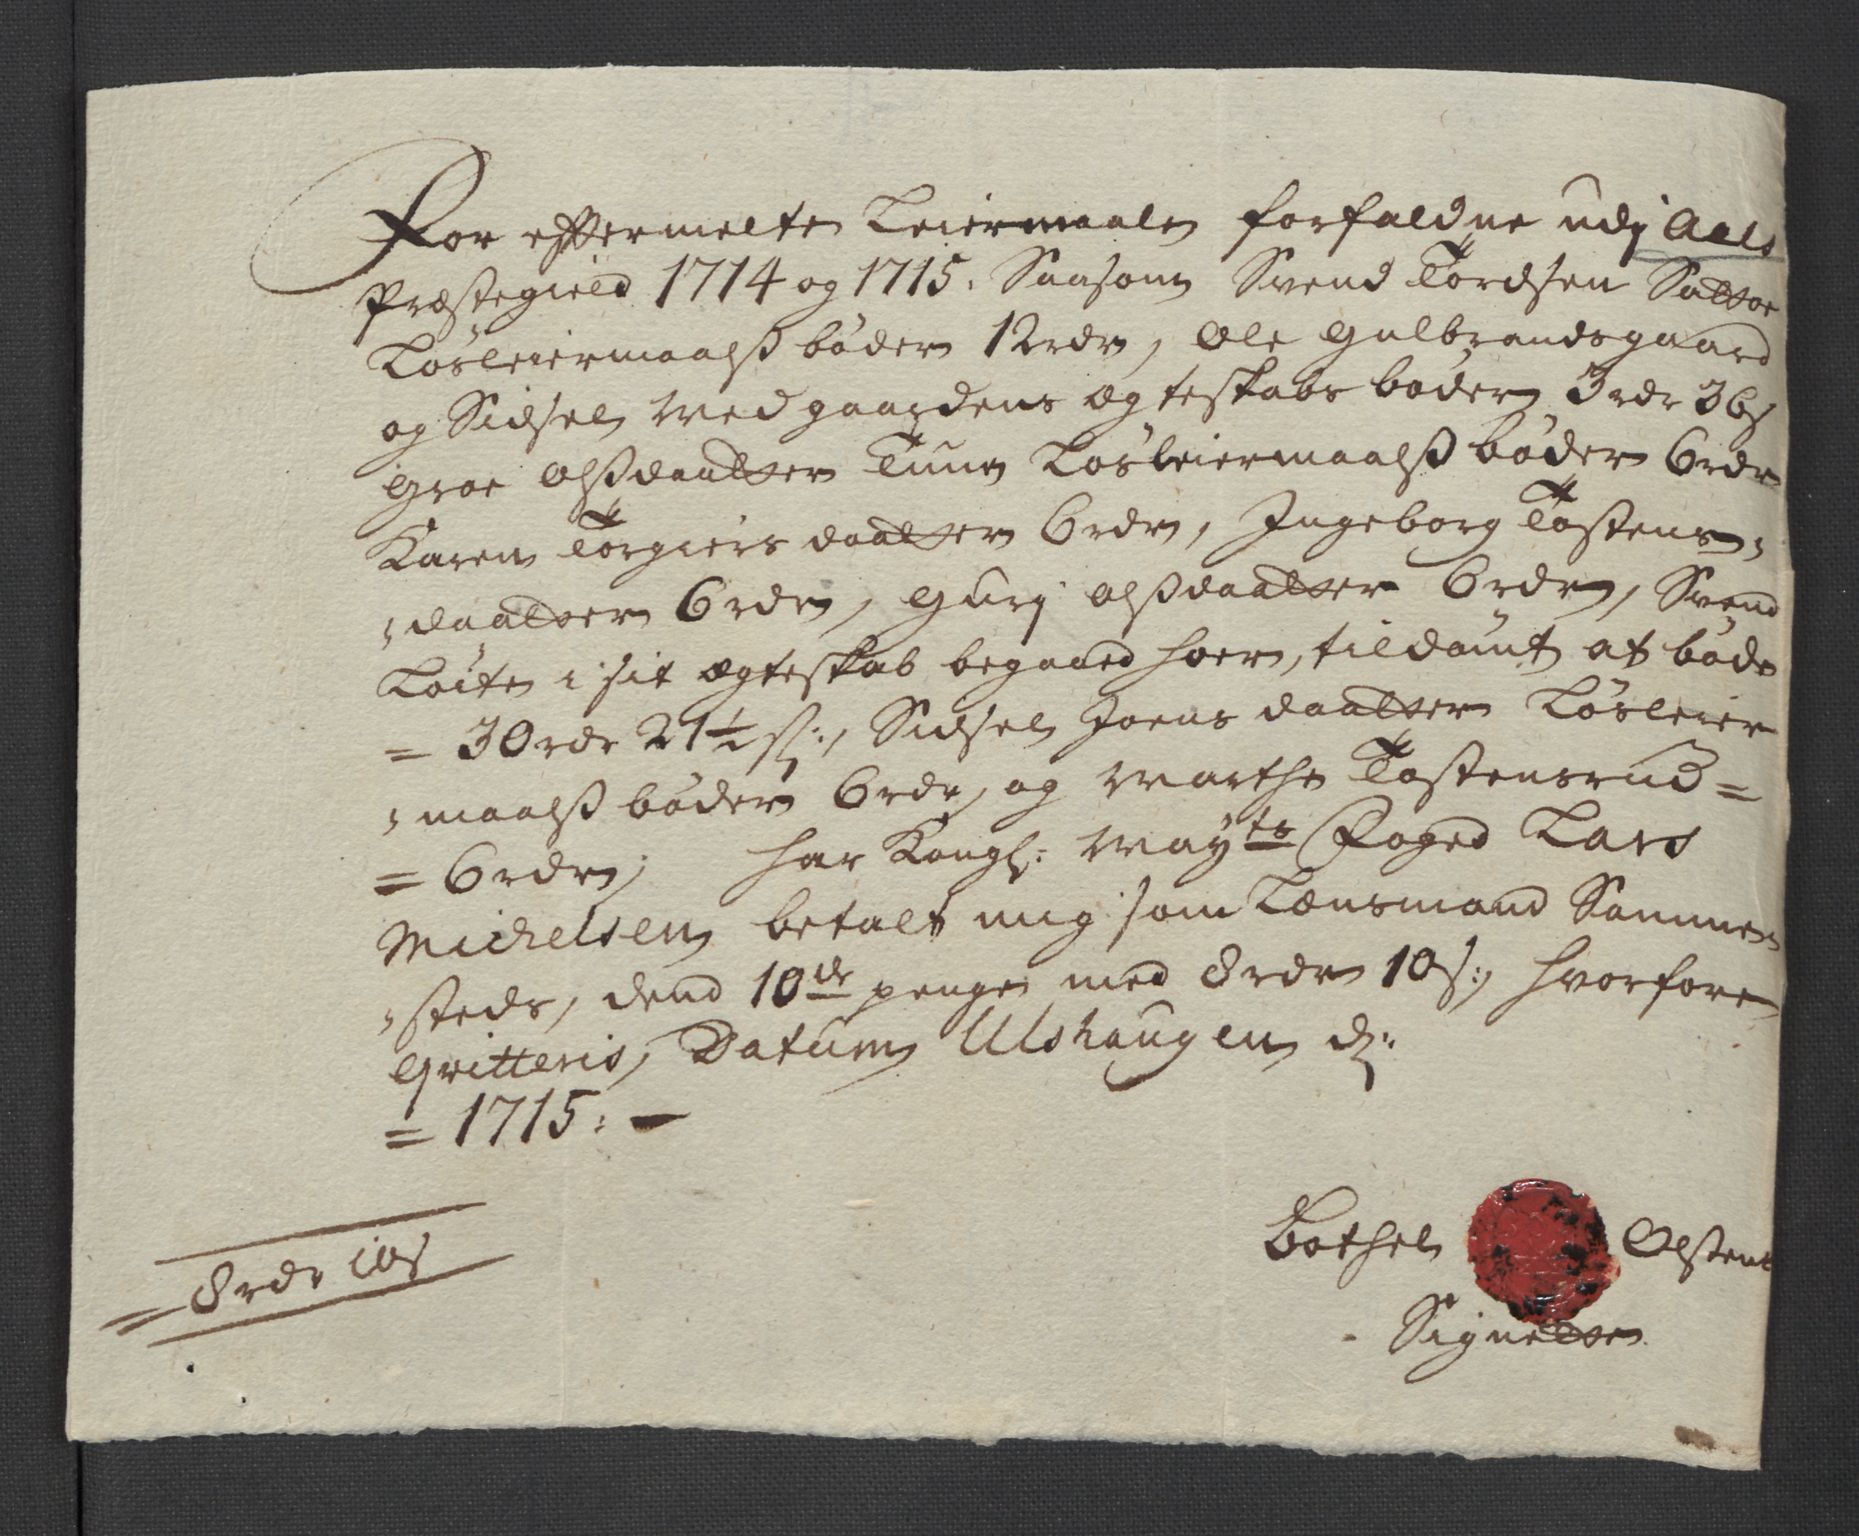 For efftermelte Leiermaale forfaldne udj Aals
Præstegield 1714 og 1715. Saasom Svend Tordsen Sattoe
Løsleiermaalß bøder 12 rdr, Ole Gulbrandsgaard
og Sidsel Medgaardens ægteskabs bøder 3 rdr 36 s
Groe Olßdaatter Tuun Løsleiermaalß bøder 6 rdr
Karen Torgiers daatter 6 rdr, Ingeborg Tostens,
,daatter 6 rdr, Gurj Olßdaatter 6 rdr, Svend
Løite i sit ægteskab begaaed hoer, tildømt at bøde
= 30 rdr 21½ s:, Sidsel Joens daatter Løsleier
,maalß bøder 6 rdr, og Marthe Tostensrud =
= 6 rdr, har Kongl: Mayts Foged Lars
Michelsen betalt mig som Lensmand Sammen
,steds, dend 10de penge med 8 rdr 10 s:, hvorfore
Qvitteris, Datum Ulshaugen d:
= 1715: —
Bothel Olsens
Signette
= 8 rdr 10 s